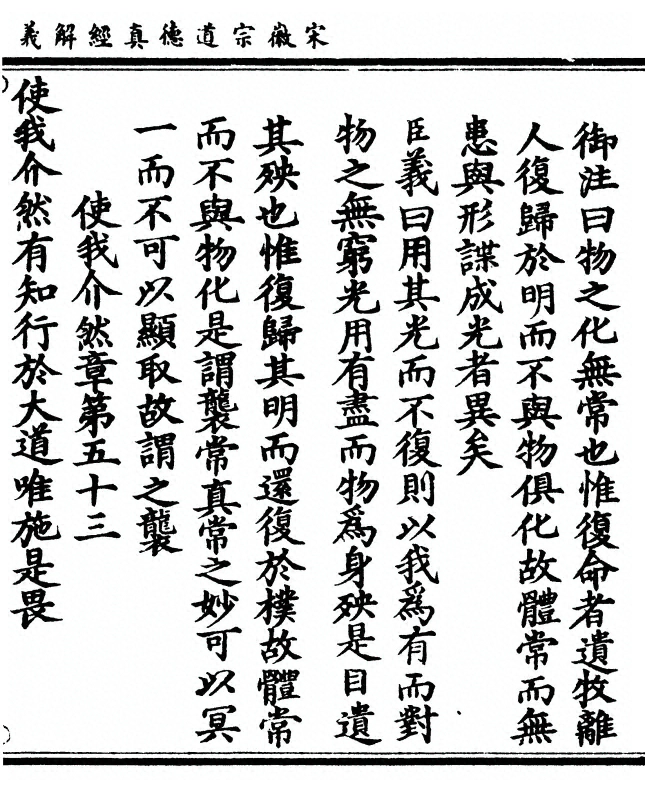 宋徽宗道德真經解義
御注曰物之化無常也惟復命者遺物離
人復歸於明而不與物俱化故體常而無
患與形諜成光者異矣
臣義曰用其光而不復則以我為有而對
物之無窮光用有盡而物為身殃是自遺
其殃也惟復歸其明而還復於樸故體常
而不與物化是謂襲常真常之妙可以冥
一而不可以顯取故謂之襲
使我介然章第五十三
使我介然有知行於大道唯施是畏